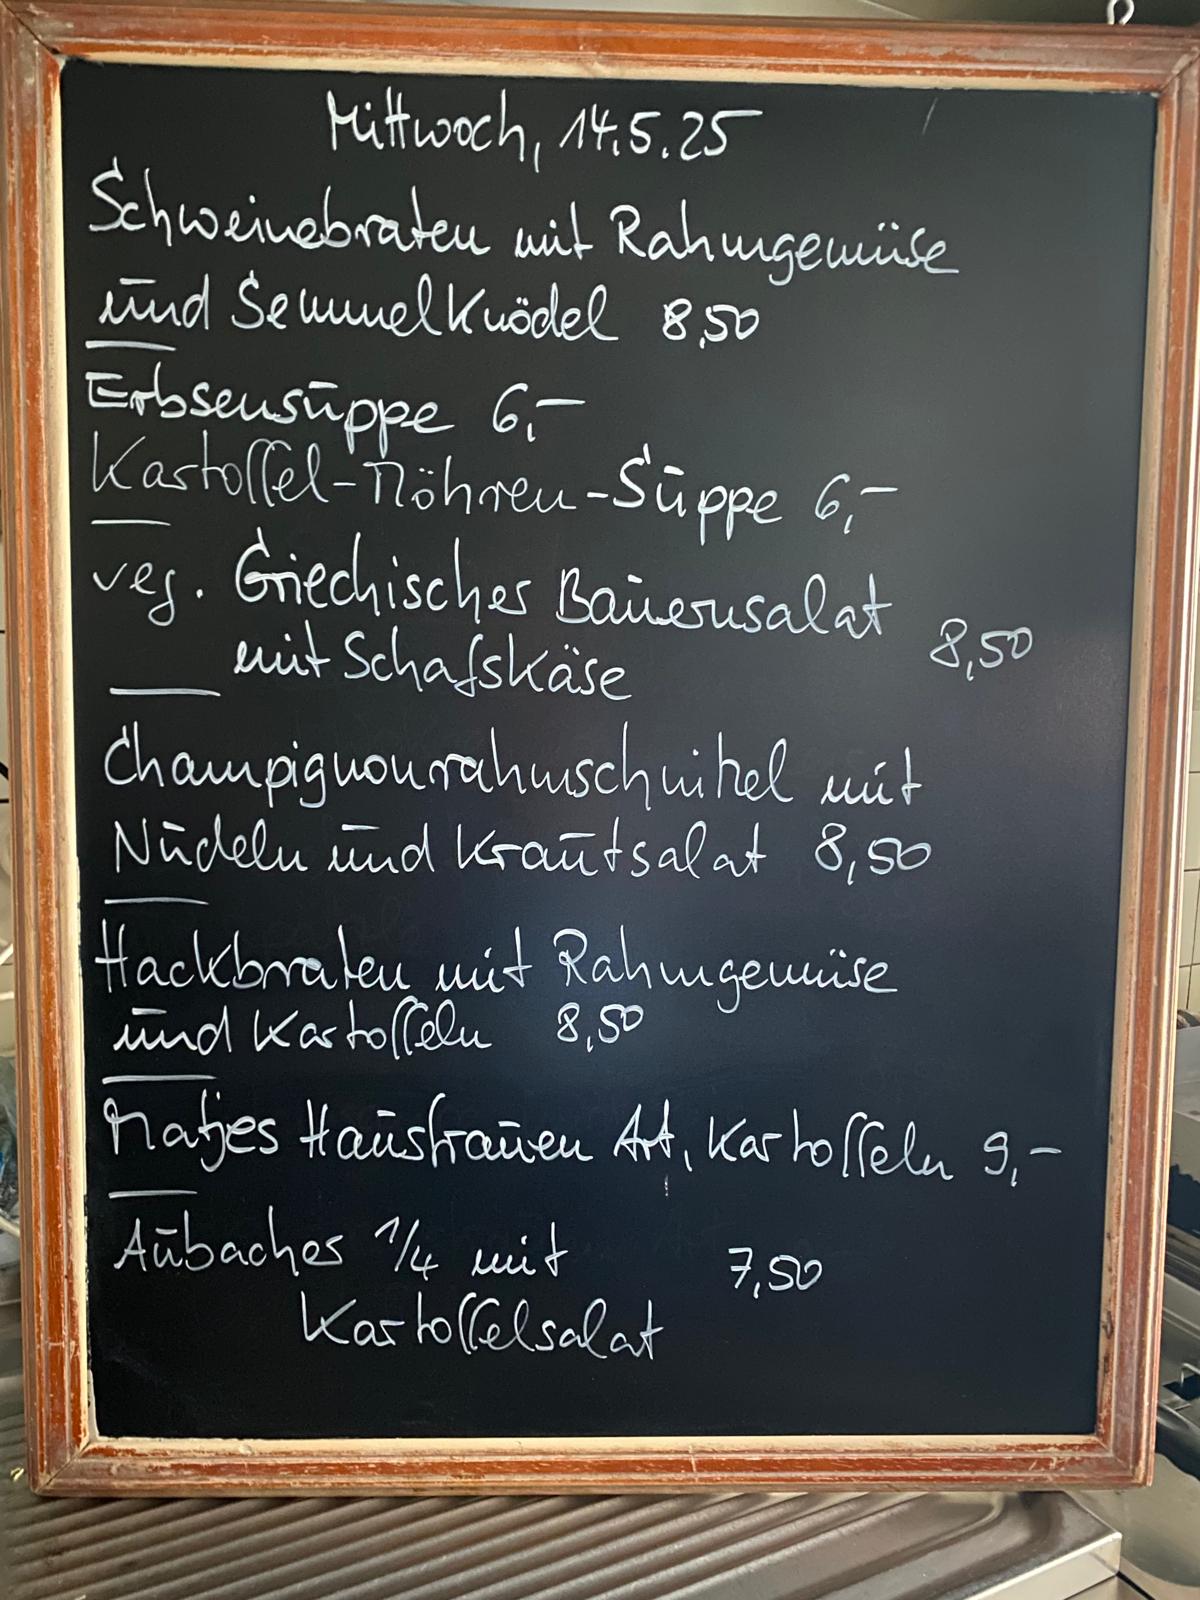 Mittwoch, 14.5.25
Schweinebraten mit Rahmgemüse
und Semmelknödel 8,50
Erbsensuppe 6,-
Kartoffel-Möhren-Suppe 6,-
veg. Griechisches Bauernsalat
mit Schafskäse 8,50
Champignonrahmschnitzel mit
Nudeln und Krautsalat 8,50
Hackbraten mit Rahmgemüse
und Kartoffeln 8,50
Matjes Hausfrauen Art, Kartoffeln 9,-
Aubaches 1/4 mit 7,50
Kartoffelsalat